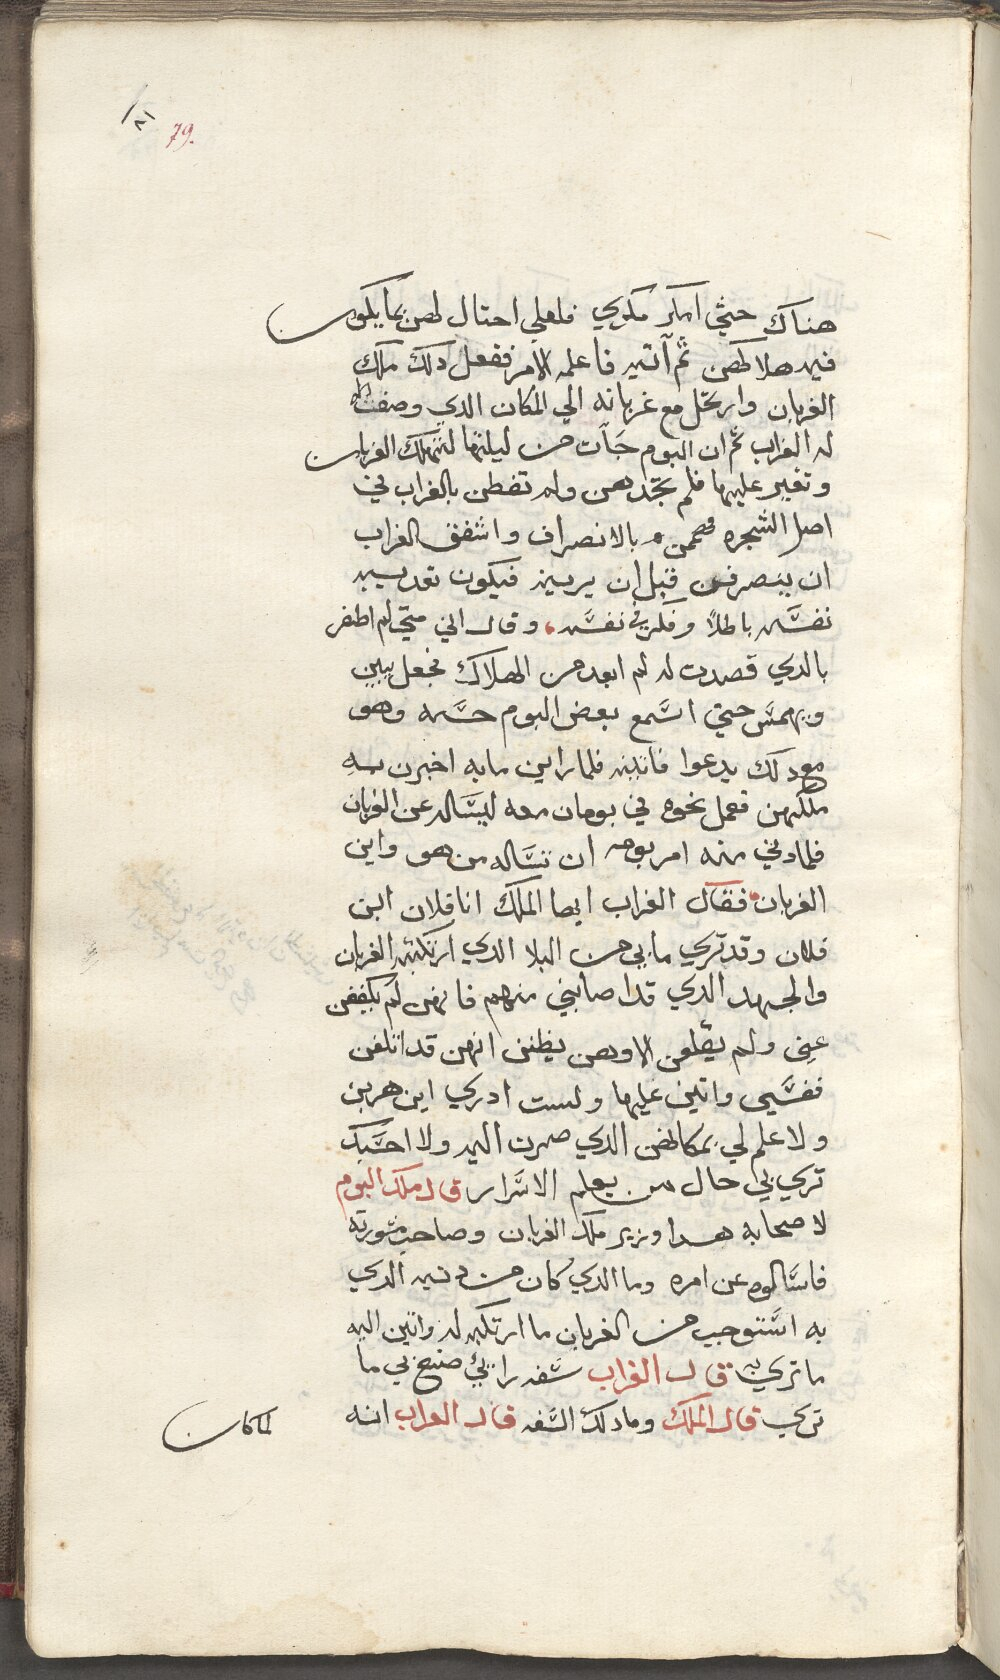 79.
هناك حتي امكر مكري فلعلي احتال لهن بما يكون
فيه هلاكهن ثم آتيه فاعلمه الامر ففعل دلك ملك
الغربان وارتحل مع غربانه الي المكان الدي وصفه
له الغراب ثم ان البوم جآت من ليلتها لتهلك الغربان
وتغير عليها فلم تجدهن ولم تفطن بالغراب في
اصل الشجره فهممن بالانصراف واشفق الغراب
ان ينصرفن قبل ان يرينه فيكون تعديبه
نفسه باطلاً وفكر في نفسه وقال اني متي لم اظفر
بالدي قصدت له لم ابعد من الهلاك فجعل يين
ويهمس حتي اسمع بعض البوم حسه وهو
مع دلك يدعوا فاتينه فلما راين ما به اخبرن به
ملكهن فعمل نحوه في بومات معه ليساله عن الغربان
فلما دني منه امر بومه ان تساله من هو واين
الغربان فقال الغراب ايها الملك انا فلان ابن
فلان وقد تري ما بي من البلا الدي ارتكبته الغربان
والجهد الدي قد اصابني منهم فانهن لم يكففن
عني ولم يقلعن الا وهن يظنن انهن قد اتلفن
نفسي واتين عليها ولست ادري اين هربن
ولا علم لي بمكانهن الدي صرن اليه ولا احسبك
تري بي حال من يعلم الاسرار قال ملك البوم
لاصحابه هدا وزير ملك الغربان وصاحب مشورته
فاسالوه عن امره وما الدي كان من دنبه الدي
به استوجب من الغربان ما ارتكبن له واتين اليه
ما تري به قال الغراب سفه رايي صنع بي ما
تري قال الملك وما دلك السفه قال الغراب انه
لما كان